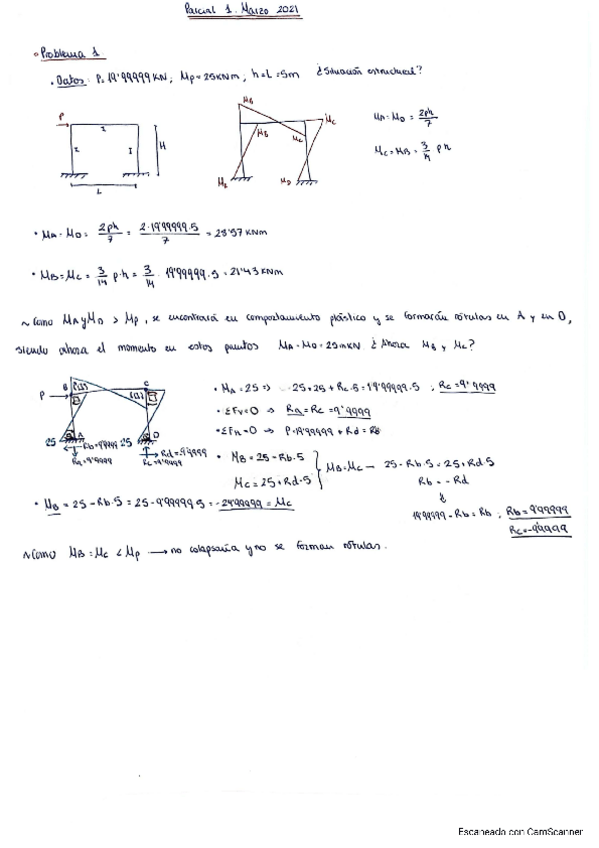 Parcial 1. Marzo 2021
• Problema 1.
• Datos: P=19'99999 KN; Mp=25KNm; h=L=5m ¿Situación estructural?
P
I
I
I
H
L
MB
MB
MC
MC
MA
MD
MA=MD= 2Ph/7
MC=MB= 3/14 Ph
• MA=MD= 2Ph/7 = 2·19'99999·5/7 = 28'57 KNm
• MB=MC= 3/14 p·h = 3/14 · 19'99999·5 = 21'43 KNm
~ Como MA y MD > Mp, se encontrará en comportamiento plástico y se formarán rótulas en A y en D,
siendo ahora el momento en estos puntos MA=MD=25mKN ¿Ahora MB y MC?
P
B
C
A
D
25
25
Rb=9'99999
Ra=9'9999
Rd=-9'99999
Rc=9'9999
• MA=25 => -25-25+Rc·5=19'99999·5; Rc=9'9999
• ΣFv=0 => Ra=Rc=9'9999
• ΣFH=0 => P=19'99999+Rd=RB
• MB=25-Rb·5
MC=25+Rd·5
MB=MC — 25-Rb·5=25+Rd·5
Rb=-Rd
19'99999-Rb=Rb; Rb=9'99999
Rc=-9'99999
• MB=25-Rb·5=25-9'99999·5=-24'99999=MC
~ Como MB=MC < Mp → no colapsaría y no se forman rótulas.
Escaneado con CamScanner